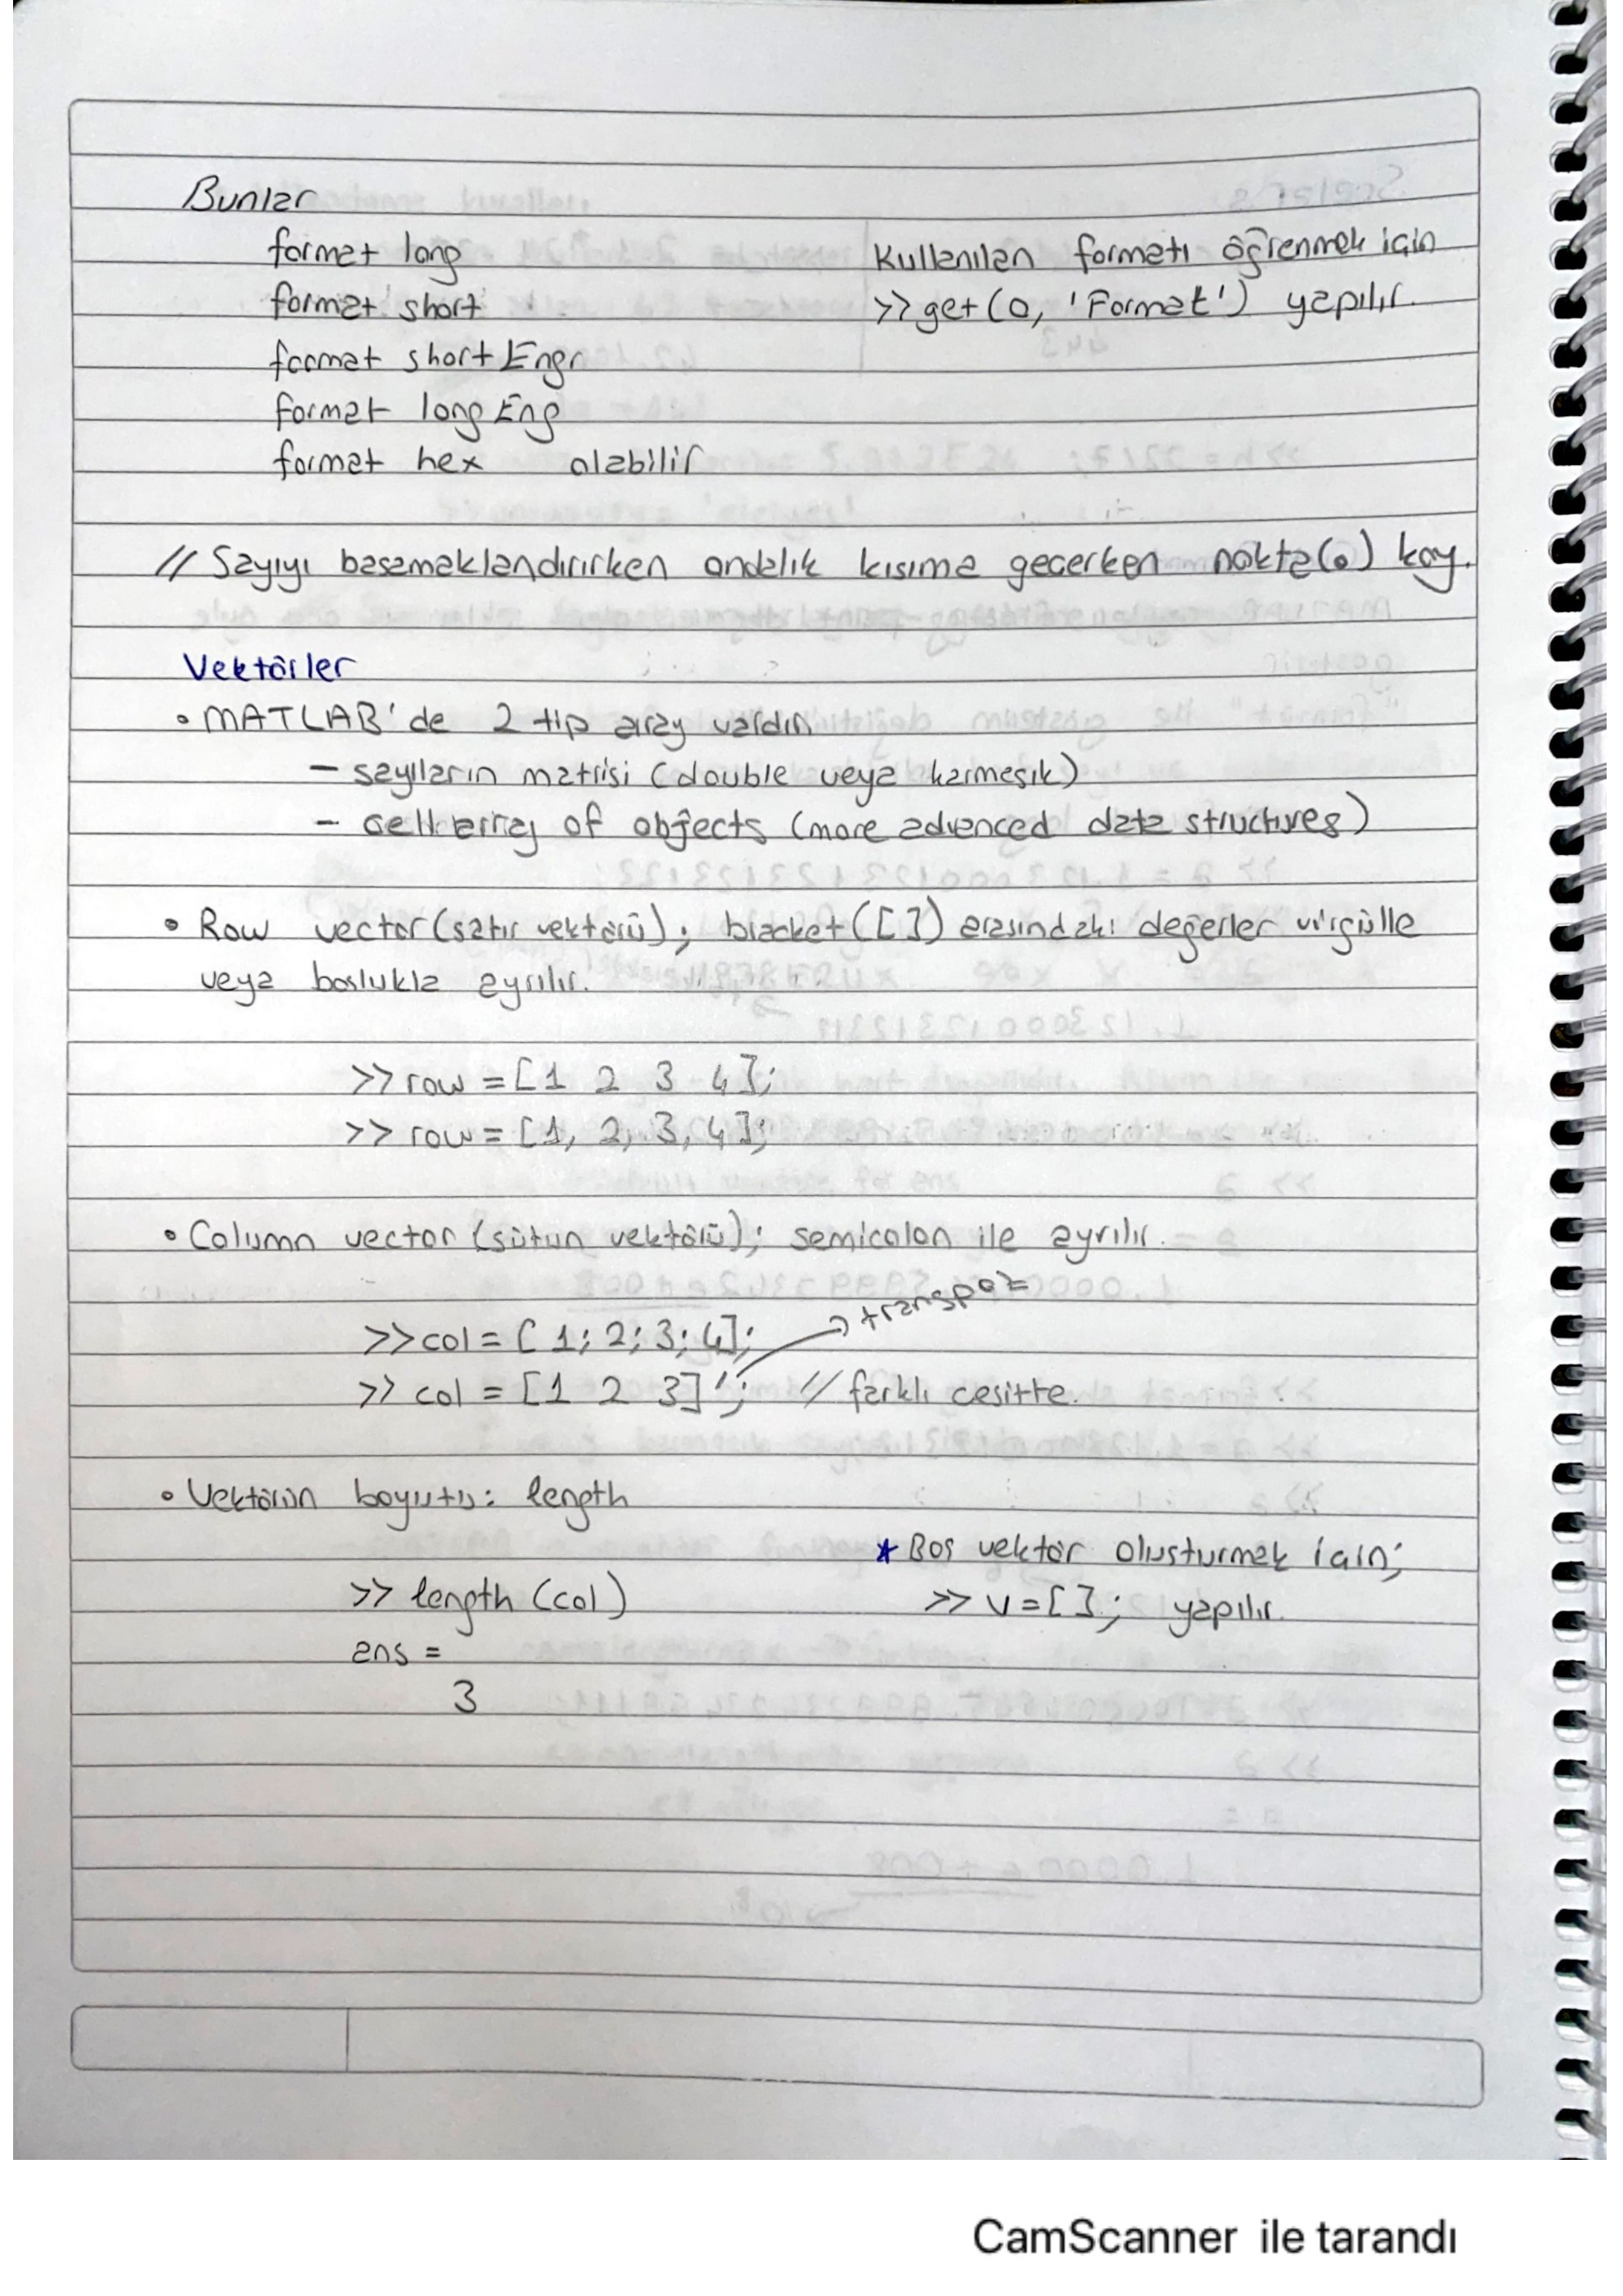 Bunlar
format long
format short
format short Engr
format long Eng
format hex olabilir
Kullanılan formatı öğrenmek için
>> get(0, 'Format') yapılır.
// Sayıyı basamaklandırırken ondalık kısıma geçerken nokta(.) koy.
Vektörler
• MATLAB'de 2 tip array vardır.
- sayıların matrisi (double veya karmaşık)
- cell array of objects (more advanced data structures)
• Row vector (satır vektörü); bracket([ ]) arasındaki değerler virgülle
veya boslukla ayrılır.
>> row = [1 2 3 4];
>> row = [1, 2, 3, 4];
• Column vector (sütun vektörü); semicolon ile ayrılır.
>> col = [1; 2; 3; 4]; → transpoz
>> col = [1 2 3]'; // farklı cesitte.
• Vektörün boyutu: length
>> length (col)
ans =
3
* Bos vektör olusturmak için;
>> v = [ ]; yapılır.
CamScanner ile tarandı